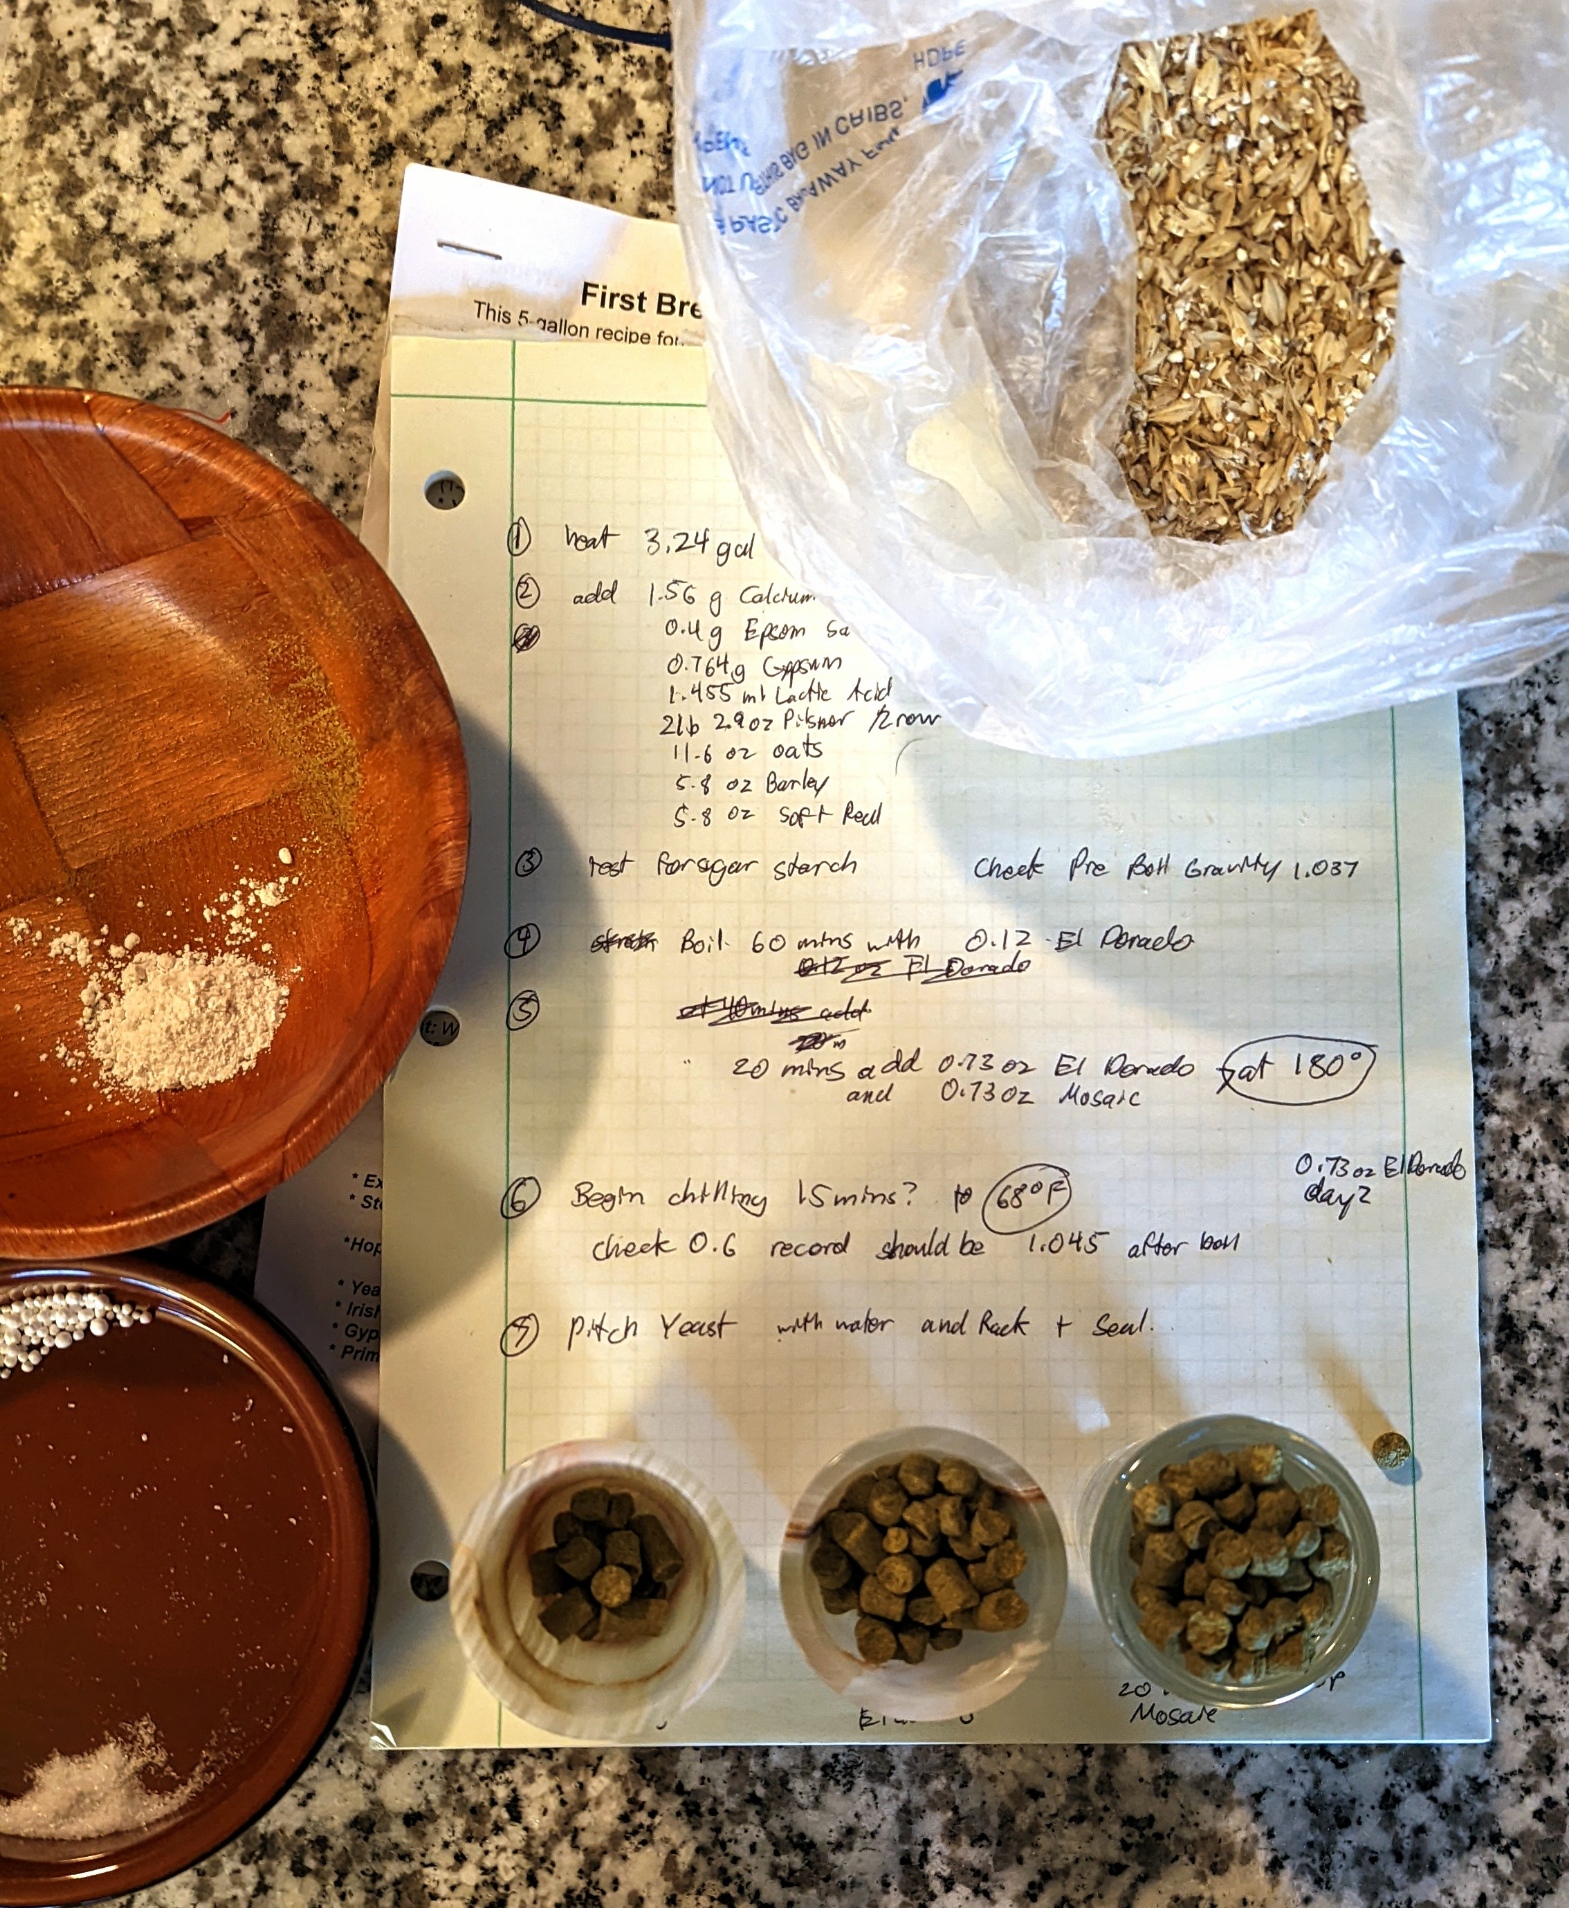 HDPE
THIS BAG IN CRIBS,
AWAY
First Bre
This 5-gallon recipe for
① heat 3.24 gal
② add 1.56 g Calcium
0.4g Epsom Sa
0.764g Gypsum
1.455 ml Lactic Acid
2lb 2.9oz Pilsner /2row
11.6 oz oats
5.8 oz Barley
5.8 oz Soft Red
③ test for sugar starch Check Pre Boil Gravity 1.037
④ strain Boil 60 mins with 0.12 El Dorado
0.12 oz El Dorado
⑤ at 40 mins add
20 m
20 mins add 0.73 oz El Dorado at 180°
and 0.73 oz Mosaic
0.73 oz El Dorado
day 2
⑥ Begin chilling 15 mins? to 68°F
check O.G record should be 1.045 after boil
⑦ Pitch Yeast with water and Rack + Seal.
t: W
* Ex
* Ste
*Hop
* Yea
* Irish
* Gyp
* Prim
20
Mosaic